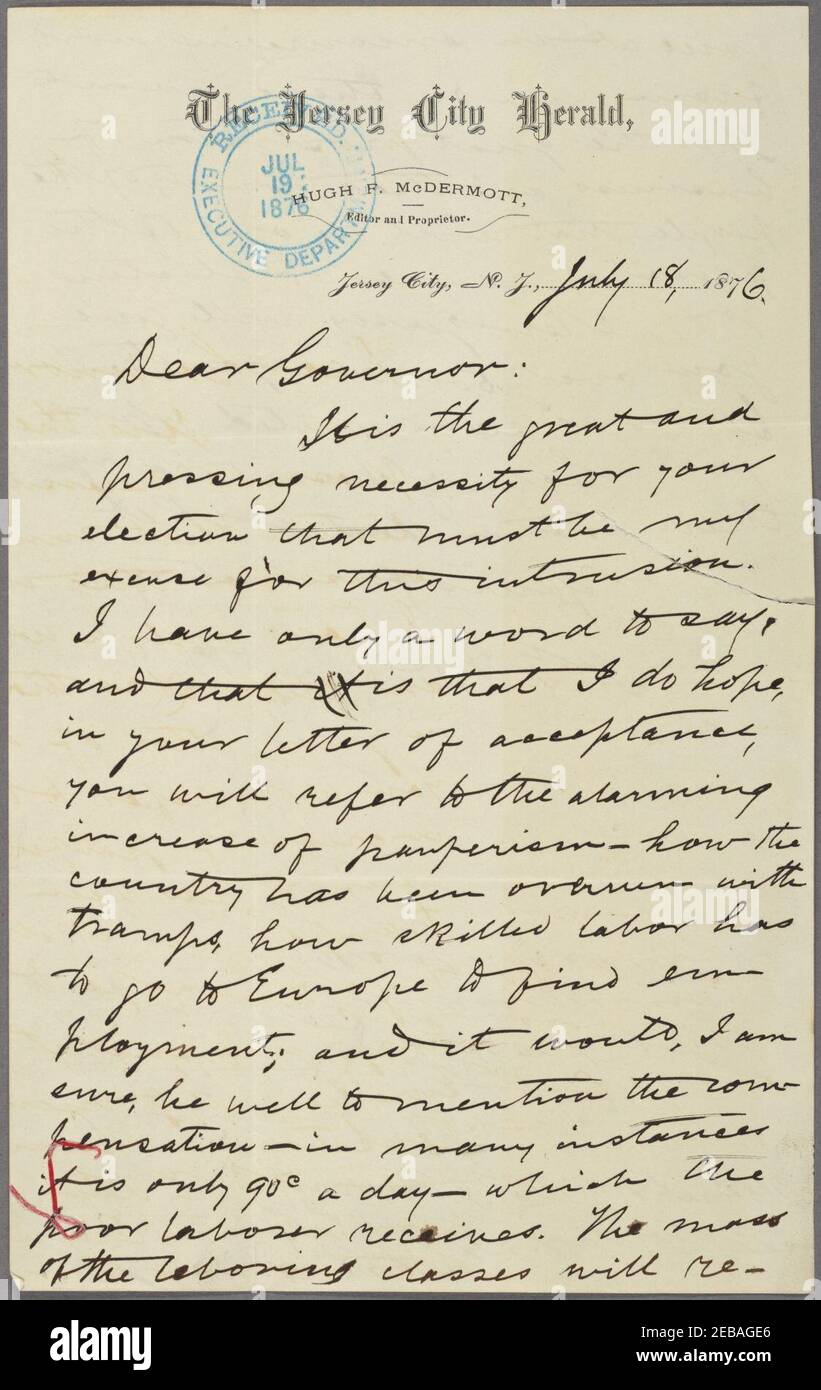 The Jersey City Herald,
RECEIVED.
EXECUTIVE DEPARTM
JUL
19
1876
HUGH F. McDERMOTT,
Editor and Proprietor.
Jersey City, N. J., July 18, 1876.
Dear Governor:
It is the great and
pressing necessity for your
election that must be my
excuse for this intrusion.
I have only a word to say,
and that is that I do hope,
in your letter of acceptance,
you will refer to the alarming
increase of pauperism – how the
country has been overrun with
tramps, how skilled labor has
to go to Europe to find em-
ployment; and it would, I am
sure, be well to mention the com-
pensation – in many instances
it is only 90c a day – which the
poor laborer receives. The mass
of the laboring classes will re-
alamy
alamy
alamy
alamy
alamy
Image ID: 2EBAGE6
www.alamy.com